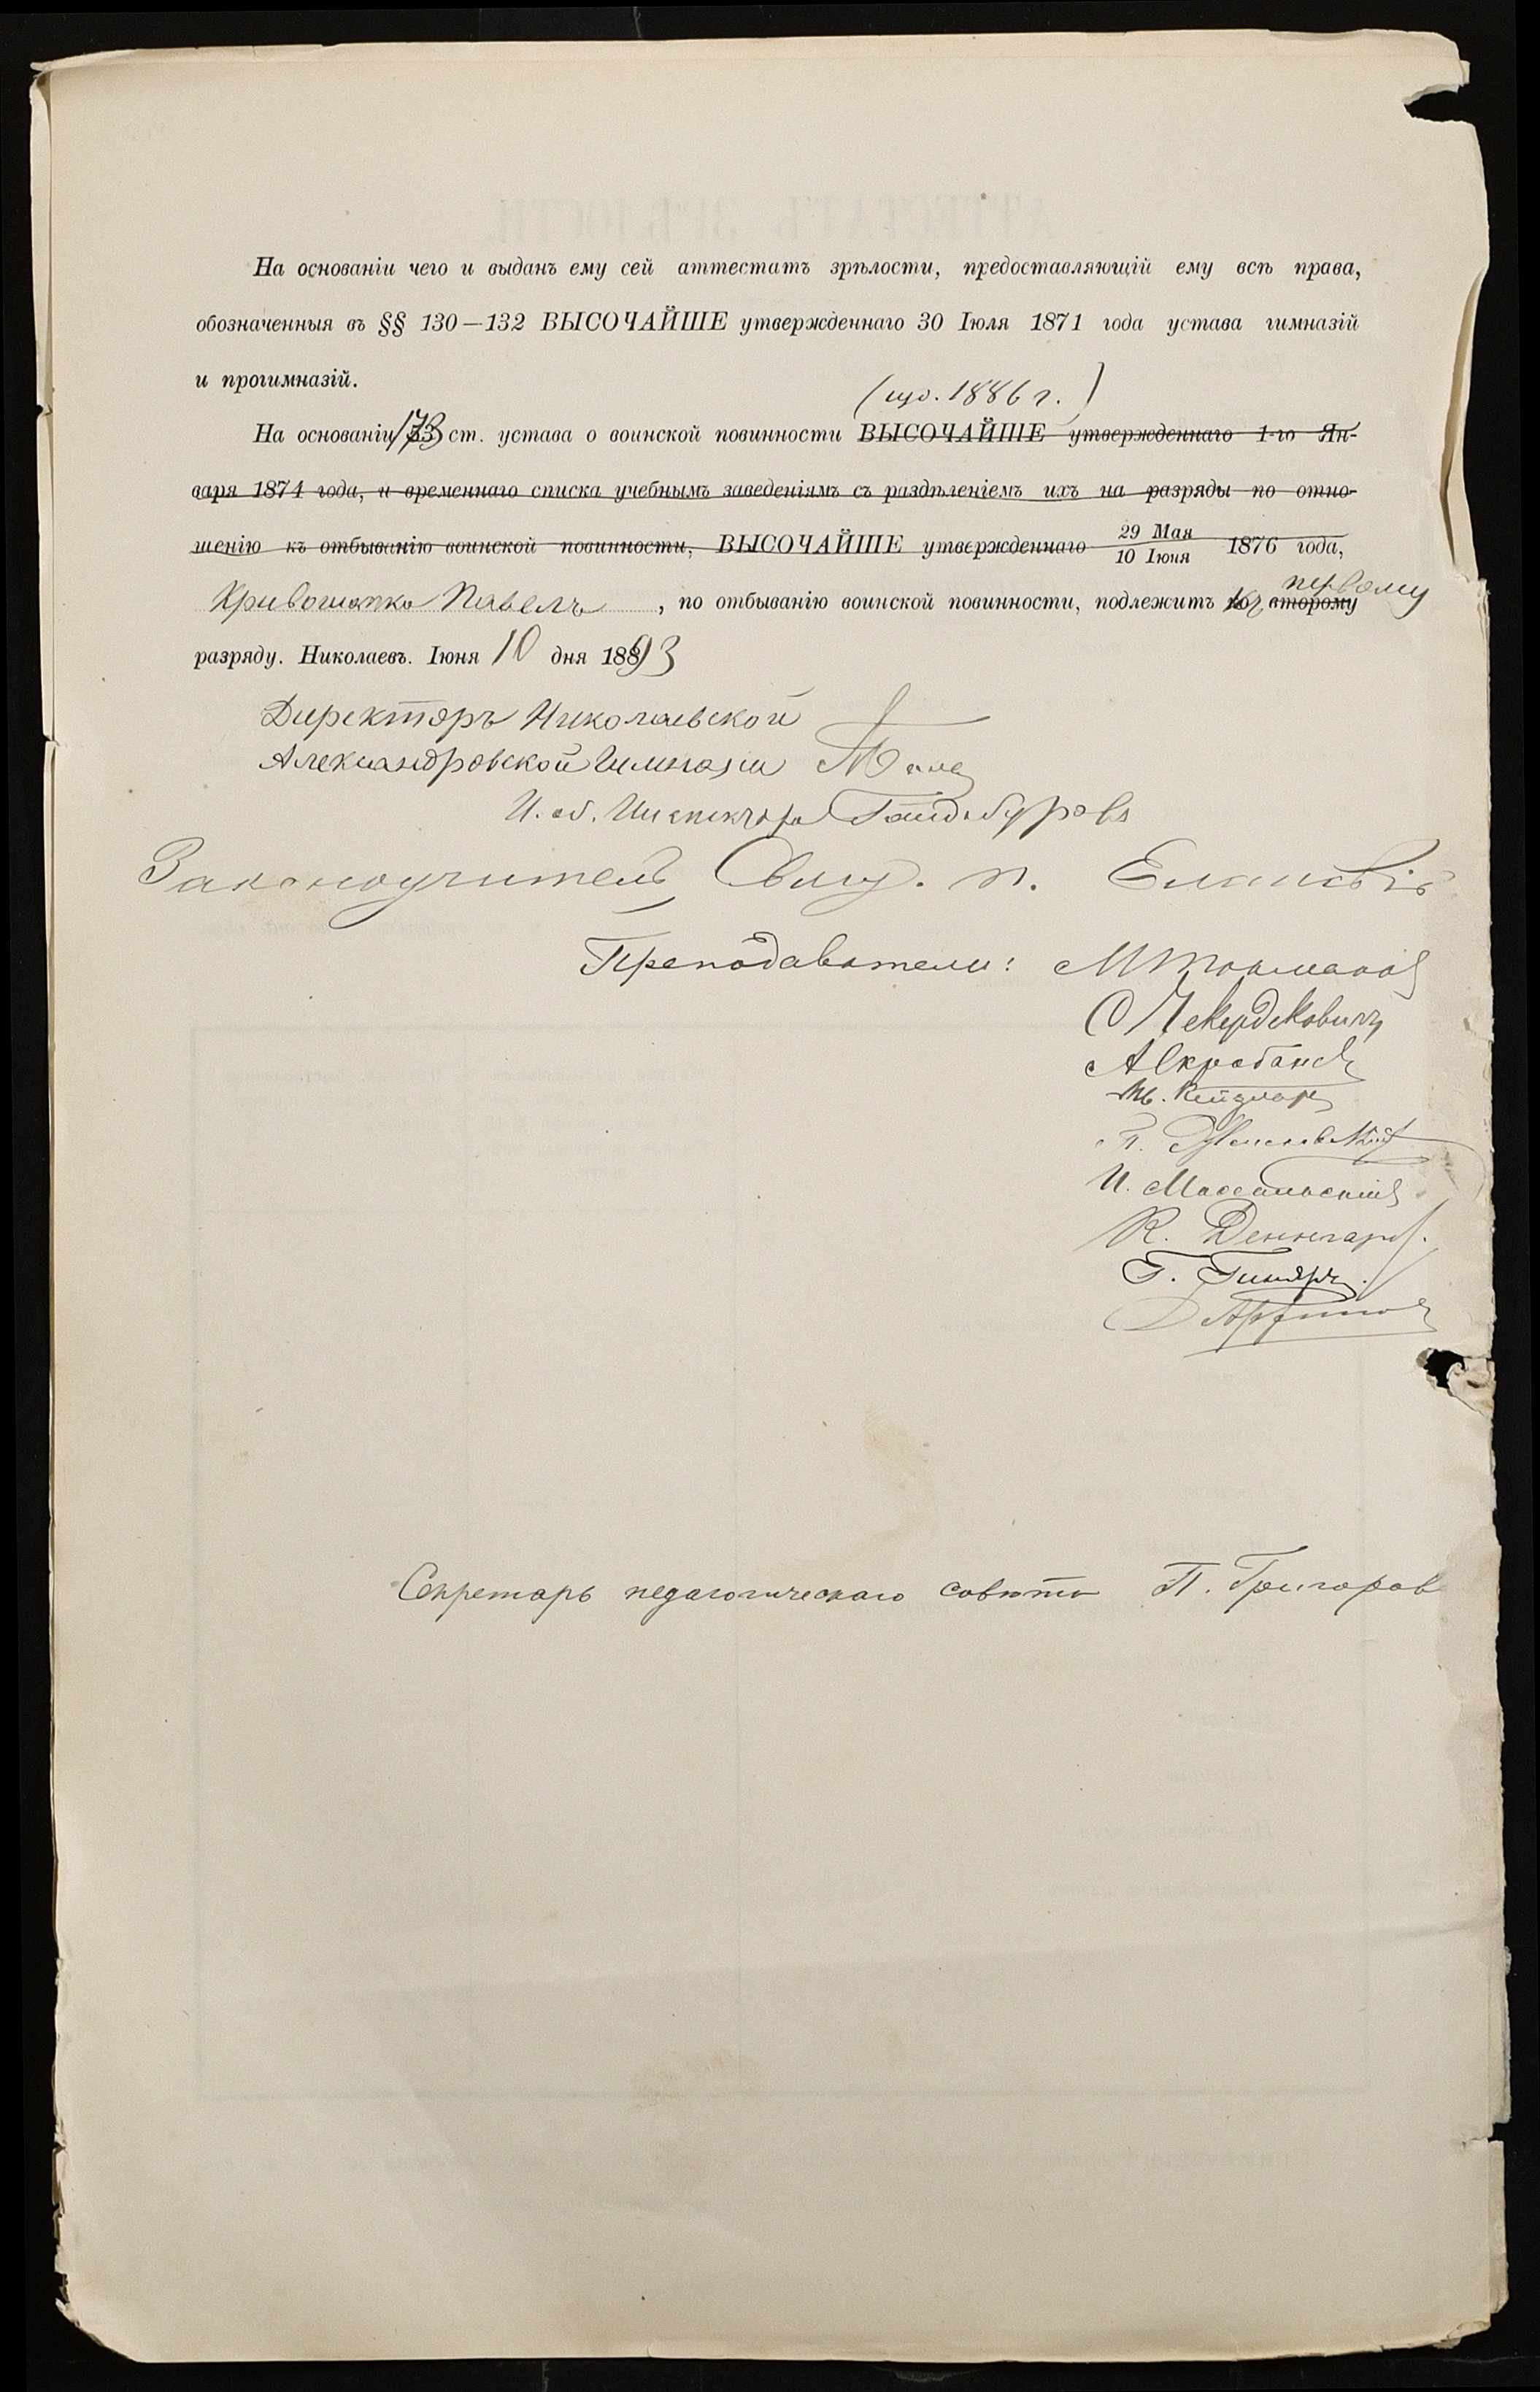 На основаніи чего и выданъ ему сей аттестатъ зрѣлости, предоставляющій ему всѣ права,
обозначенныя въ §§ 130—132 ВЫСОЧАЙШЕ утвержденнаго 30 Іюля 1871 года устава гимназій
и прогимназій.
(изд. 1886 г.)
На основаніи 173 ст. устава о воинской повинности ВЫСОЧАЙШЕ утвержденнаго 1-го Ян-
варя 1874 года, и временнаго списка учебнымъ заведеніямъ съ раздѣленіемъ ихъ на разряды по отно-
шенію къ отбыванію воинской повинности, ВЫСОЧАЙШЕ утвержденнаго 29 Мая / 10 Іюня 1876 года,
первому
Кривошапка Павелъ, по отбыванію воинской повинности, подлежитъ къ второму
разряду. Николаевъ. Іюня 10 дня 1893
Директоръ Николаевской
Александровской Гимназіи
И. об. Инспектора
Законоучитель Свящ. п.
Преподаватели:
И. Массальскій
Секретарь педагогическаго совѣта П. Григоров